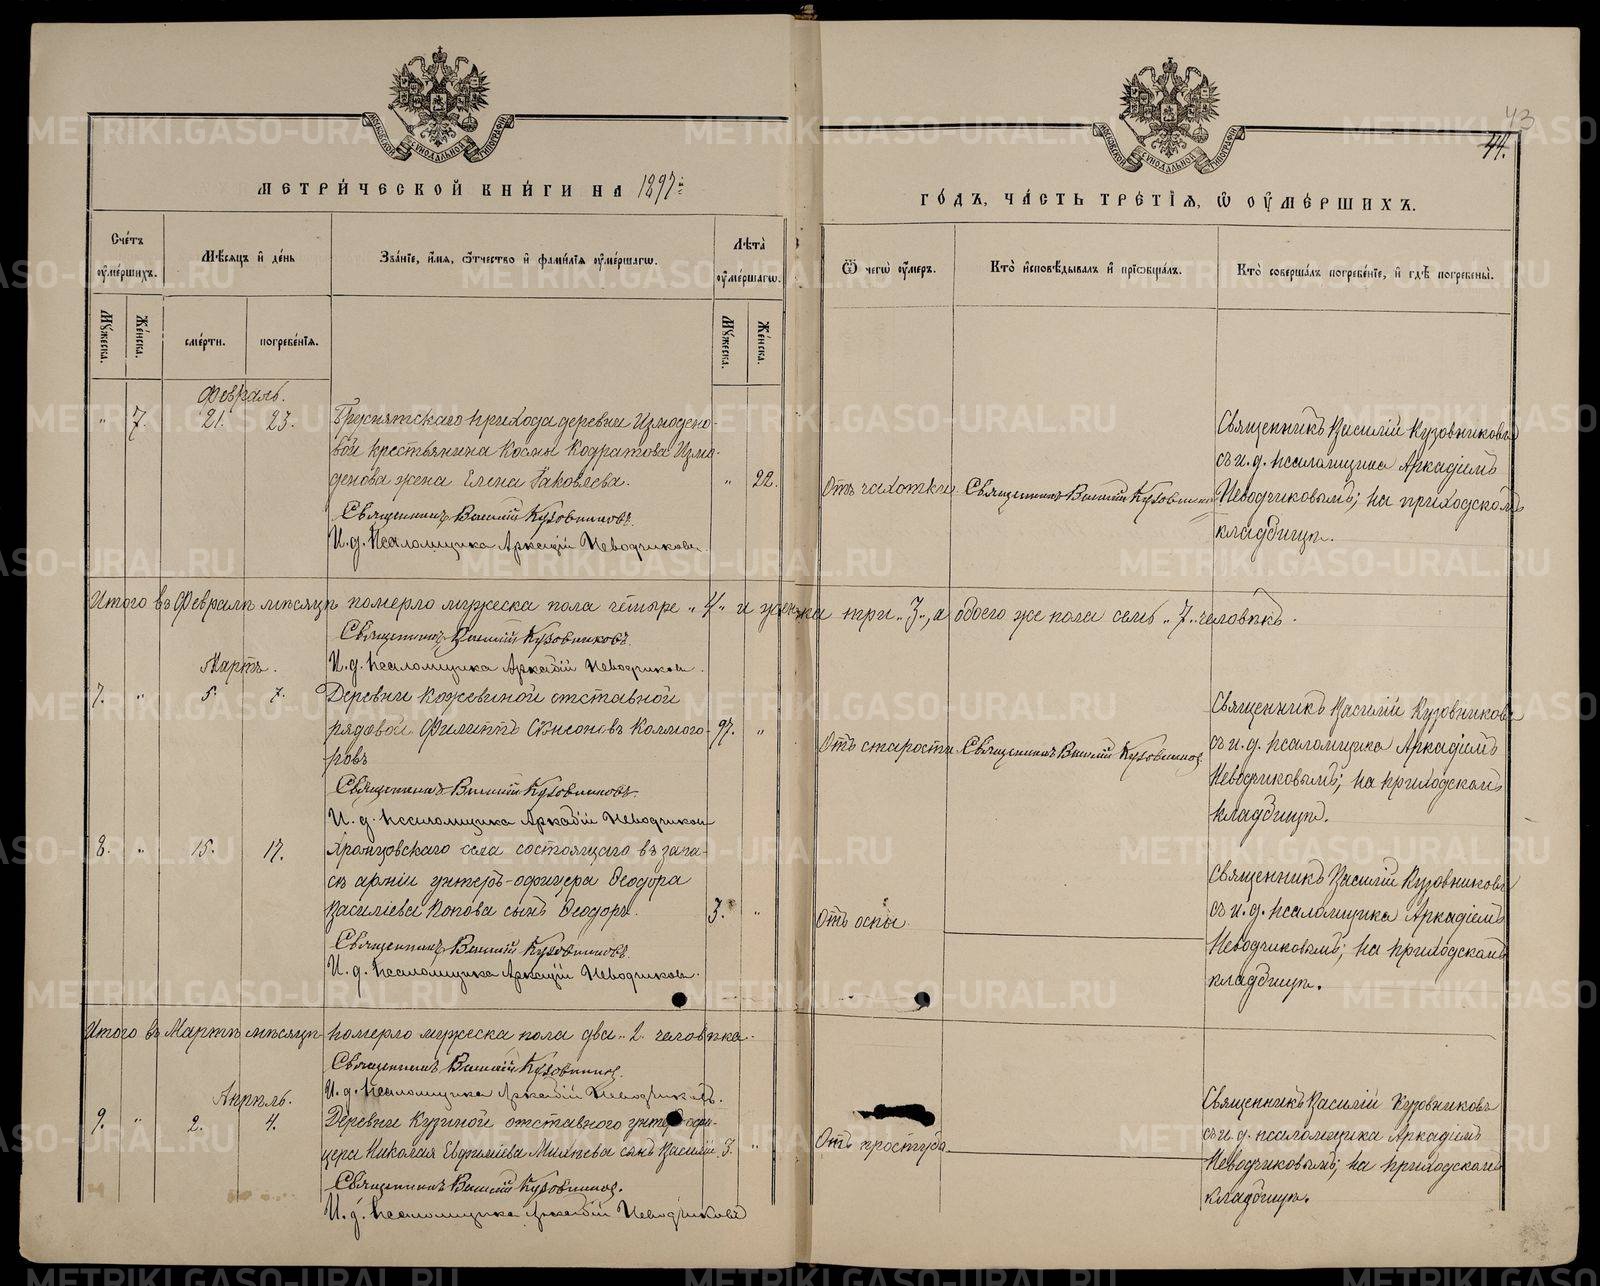 МЕТРИ́ЧЕСКОЙ КНИ́ГИ НА 1897й
ГО́ДЪ, ЧА́СТЬ ТРЕ́ТІѦ, Ѿ ОУМЕ́РШИХЪ.
43
44.
МОСКОВСКОЙ СѴНОДАЛЬНОЙ ТИПОГРАФІИ
МОСКОВСКОЙ СѴНОДАЛЬНОЙ ТИПОГРАФІИ
Сче́тъ оуме́ршихъ.
Мѣ́сяцъ и де́нь
Зва́ніе, и́мя, ѻ́тчество и фами́лія оуме́ршагѡ.
Лѣ́та оуме́ршагѡ.
Ѿ чегѡ̀ оу́меръ.
Кто̀ исповѣ́дывалъ и пріѡбща́лъ.
Кто̀ соверша́лъ погребе́ніе, и гдѣ̀ погребены̀.
Мꙋ́жеска.
Же́нска.
сме́рти.
погребе́нія.
Мꙋ́жеска.
Же́нска.
Февраль.
" 7. 21. 23.
Бруснятскаго прихода деревни Измодено-
вой крестьянина Космы Кодратова Измо-
денова жена Елена Іаковлева. " 22.
Священникъ Василій Кузовниковъ.
И. д. Псаломщика Аркадій Неводчиковъ.
Отъ чахотки
Священникъ Василій Кузовников
Священникъ Василій Кузовниковъ
съ и. д. псаломщика Аркадіемъ
Неводчиковымъ; на приходскомъ
кладбищѣ.
Итого въ Февралѣ мѣсяцѣ померло мужеска пола четыре "4" и женска три "3", а обоего же пола семь "7" человѣкъ.
Священникъ Василій Кузовниковъ.
И. д. псаломщика Аркадій Неводчиков.
Мартъ.
7. " 5. 7.
Деревни Кожевиной отставной
рядовой Филиппъ Колмого- 97. "
ровъ
Священникъ Василій Кузовниковъ.
И. д. псаломщика Аркадій Неводчиков
Отъ старости
Священникъ Василій Кузовников
Священникъ Василій Кузовниковъ
съ и. д. псаломщика Аркадіемъ
Неводчиковымъ; на приходскомъ
кладбищѣ.
8. " 15. 17.
Хромцовскаго села состоящаго въ запа-
сѣ арміи унтеръ-офицера Ѳеодора
Василіева Попова сынъ Ѳеодоръ. 3. "
Священникъ Василій Кузовниковъ.
И. д. Псаломщика Аркадій Неводчиков.
Отъ оспы.
Священникъ Василій Кузовниковъ
съ и. д. псаломщика Аркадіемъ
Неводчиковымъ; на приходскомъ
кладбищѣ.
Итого въ Мартѣ мѣсяцѣ померло мужеска пола два "2" человѣка.
Священникъ Василій Кузовников.
И. д. псаломщика Аркадій Неводчиковъ.
Апрѣль.
9. " 2. 4.
Деревни отставного унтеръ-офи-
цера Николая Евфиміева сынъ Василій. 3. "
Священникъ Василій Кузовников.
И. д. псаломщика Аркадій Неводчиковъ
Отъ простуды
Священникъ Василій Кузовниковъ
съ и. д. псаломщика Аркадіемъ
Неводчиковымъ; на приходскомъ
кладбищѣ.
METRIKI.GASO-URAL.RU